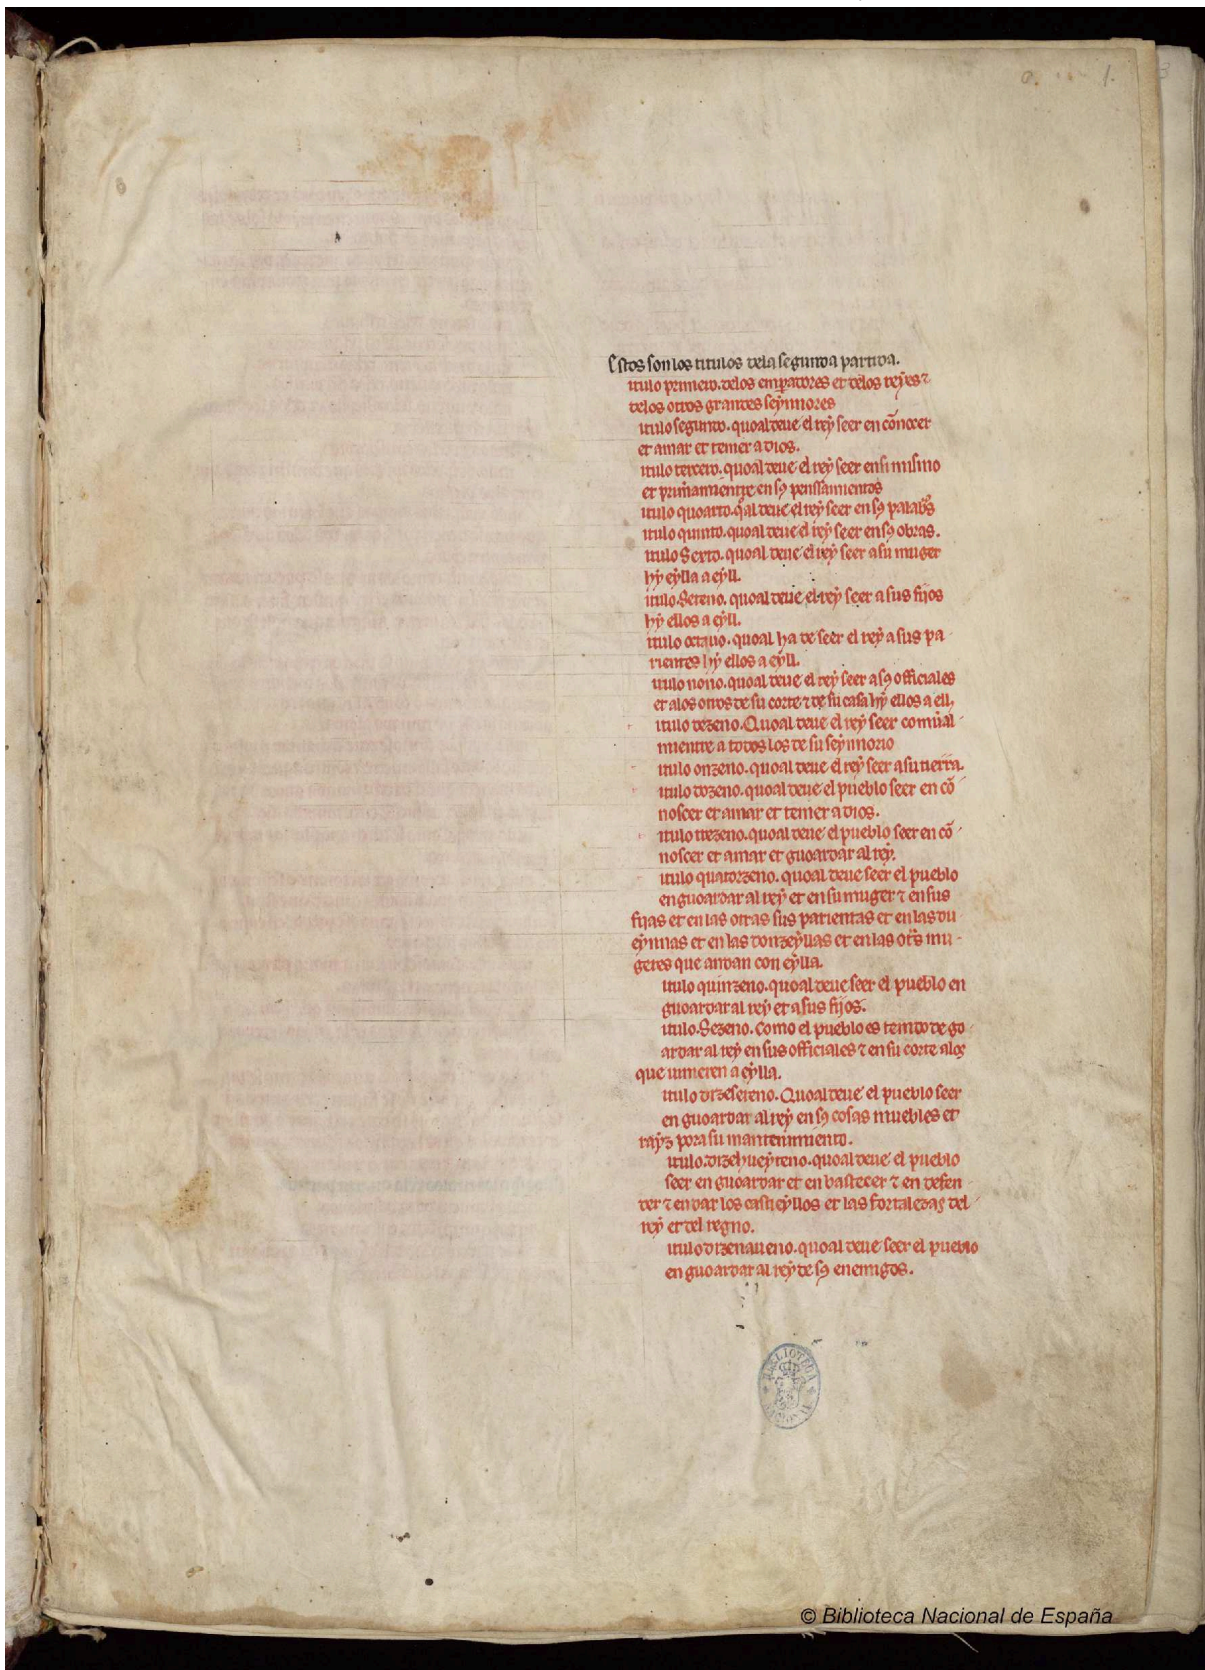 1.
Estos son los titulos dela segunda partida.
itulo primero. delos emperadores et delos reyes ⁊
delos otros grandes seynnores
itulo segundo. quoal deue el rey seer en cōnoscer
et amar et temer a dios.
itulo tercero. quoal deue el rey seer ensi mismo
et primamientre en sꝯ penssamientos
itulo quoarto. q̃l deue el rey seer en sꝯ palab̃s
itulo quinto. quoal deue el rey seer en sꝯ obras.
itulo Sexto. quoal deue el rey seer a su muger
hy eylla a eyll.
itulo Seteno. quoal deue el rey seer a sus fijos
hy ellos a eyll.
itulo octauo. quoal ha de seer el rey a sus pa
rientes hy ellos a eyll.
itulo nono. quoal deue el rey seer a sꝯ officiales
et alos otros de su corte ⁊ de su casa hy ellos a ell.
itulo dezeno. Quoal deue el rey seer comũal
mientre a todos los de su seynnorio
itulo onzeno. quoal deue el rey seer a su tierra.
itulo dozeno. quoal deue el pueblo seer en cō
noscer et amar et temer a dios.
itulo trezeno. quoal deue el pueblo seer en cō
noscer et amar et guoardar al rey.
itulo quatorzeno. quoal deue seer el pueblo
en guoardar al rey et en su muger ⁊ en sus
fijas et en las otras sus parientas et en las du
eynnas et en las donzeyllas et en las ot̃s mu
geres que andan con eylla.
itulo quinzeno. quoal deue seer el pueblo en
guoardar al rey et a sus fijos.
itulo. Sezeno. Como el pueblo es tenido de go
ardar al rey en sus officiales ⁊ en su corte alos
que uinieren a eylla.
itulo dizeseteno. Quoal deue el pueblo seer
en guoardar al rey en sꝯ cosas muebles et
rayz pora su mantenimiento.
itulo. dizehueyteno. quoal deue el pueblo
seer en guoardar et en bastecer ⁊ en defen
der ⁊ en dar los casteyllos et las fortalezas del
rey et del regno.
itulo dizenaueno. quoal deue seer el pueblo
en guoardar al rey de sꝯ enemigos.
BIBLIOTECA
© Biblioteca Nacional de España